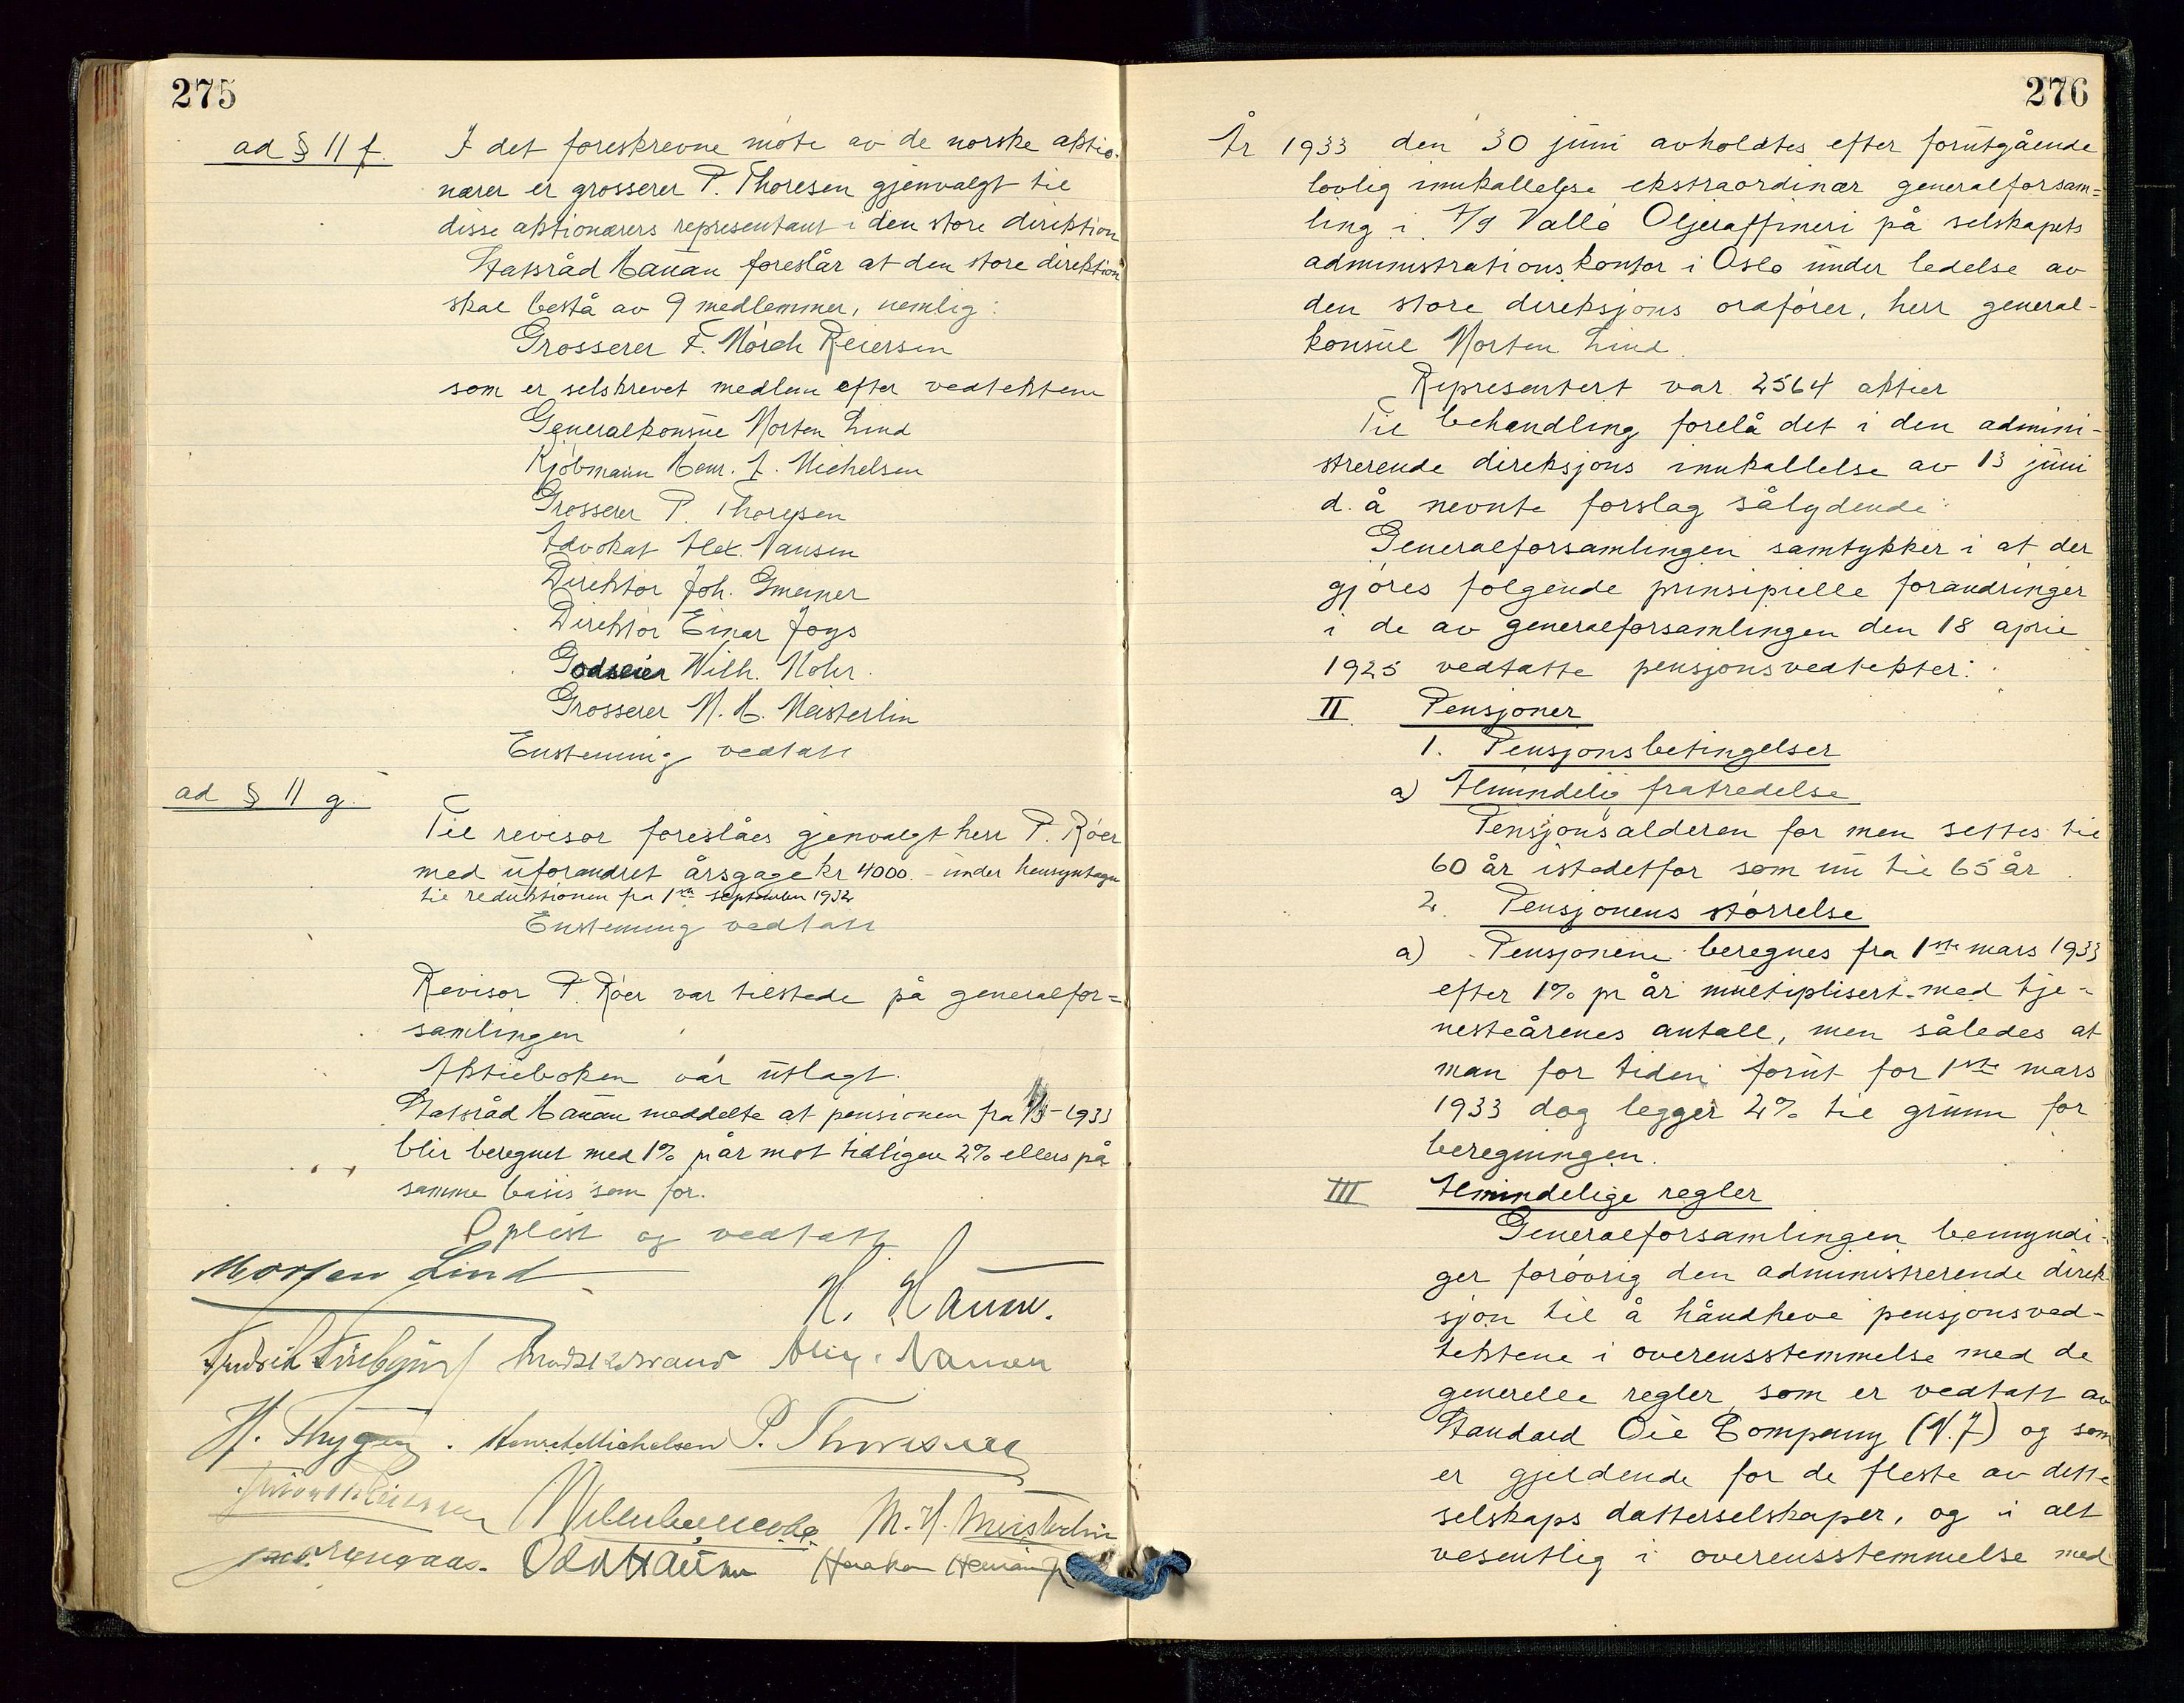 275
ad § 11 f. I det foreskrevne møte av de norske aktio-
nærer er grosserer P. Thoresen gjenvalgt til
disse aktionærers representant i den store direktion
Statsråd Hauan foreslår at den store direktion
skal bestå av 9 medlemmer, nemlig:
Grosserer F. Mørch Reiersen
som er selskrevet medlem efter vedtektene
Generalkonsul Morten Lind
Kjøbmann Henr. J. Michelsen
Grosserer P. Thoresen
Advokat Alex. Nansen
Direktør Joh. Gmeiner
Direktør Einar Joys
Godseier Wilh. Mohr.
Grosserer M. H. Meisterlin
Enstemmig vedtatt
ad § 11 g.
Til revisor foreslåes gjenvalgt herr P. Røer
med uforandret årsgage kr 4000.- under hensyntagen
til reduktionen fra 1ste september 1932
Enstemmig vedtatt
Revisor P. Røer var tilstede på generalfor=
samlingen
Aktieboken var utlagt.
Statsråd Hauan meddelte at pensionen fra - 1933
blir beregnet med 1% pr år mot tidligere 2% ellers på
samme basis som før.
Oplest og vedtatt
Morten Lind
H. Hauan.
Alex. Nansen
H. Thygesen. Henr J Michelsen P. Thoresen
M. H. Meisterlin
Odd Hauan Haakon
276
År 1933 den 30 juni avholdtes efter forutgående
lovlig innkallelse ekstraordinær generalforsam=
ling i A/S Vallø Oljeraffineri på selskapets
administrationskontor i Oslo under ledelse av
den store direksjons ordfører, herr general-
konsul Morten Lind.
Representert var 2564 aktier
Til behandling forelå det i den admini-
strerende direksjons innkallelse av 13 juni
d. å nevnte forslag sålydende:
Generalforsamlingen samtykker i at der
gjøres følgende prinsipielle forandringer
i de av generalforsamlingen den 18 april
1925 vedtatte pensjonsvedtekter:
II Pensjoner
1. Pensjonsbetingelser
a) Almindelig fratredelse
Pensjonsalderen for men settes til
60 år istedetfor som nu til 65 år.
2. Pensjonens størrelse
a) Pensjonene beregnes fra 1ste mars 1933
efter 1% pr år multiplisert med tje-
nesteårenes antall, men således at
man for tiden forut for 1ste mars
1933 dog legger 2% til grunn for
beregningen.
III Almindelige regler
Generalforsamlingen bemyndi-
ger forøvrig den administrerende direk-
sjon til å håndheve pensjonsved-
tektene i overensstemmelse med de
generelle regler som er vedtatt av
Standard Oil Company (N.J) og som
er gjeldende for de fleste av dette
selskaps datterselskaper, og i alt
vesentlig i overensstemmelse med